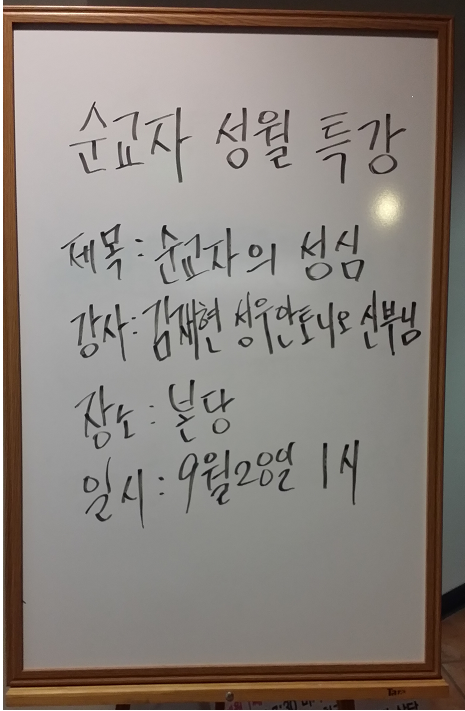 순교자 성월 특강
제목: 순교자의 성심
강사: 김재현 성우안토니오 신부님
장소: 본당
일시: 9월20일 1시